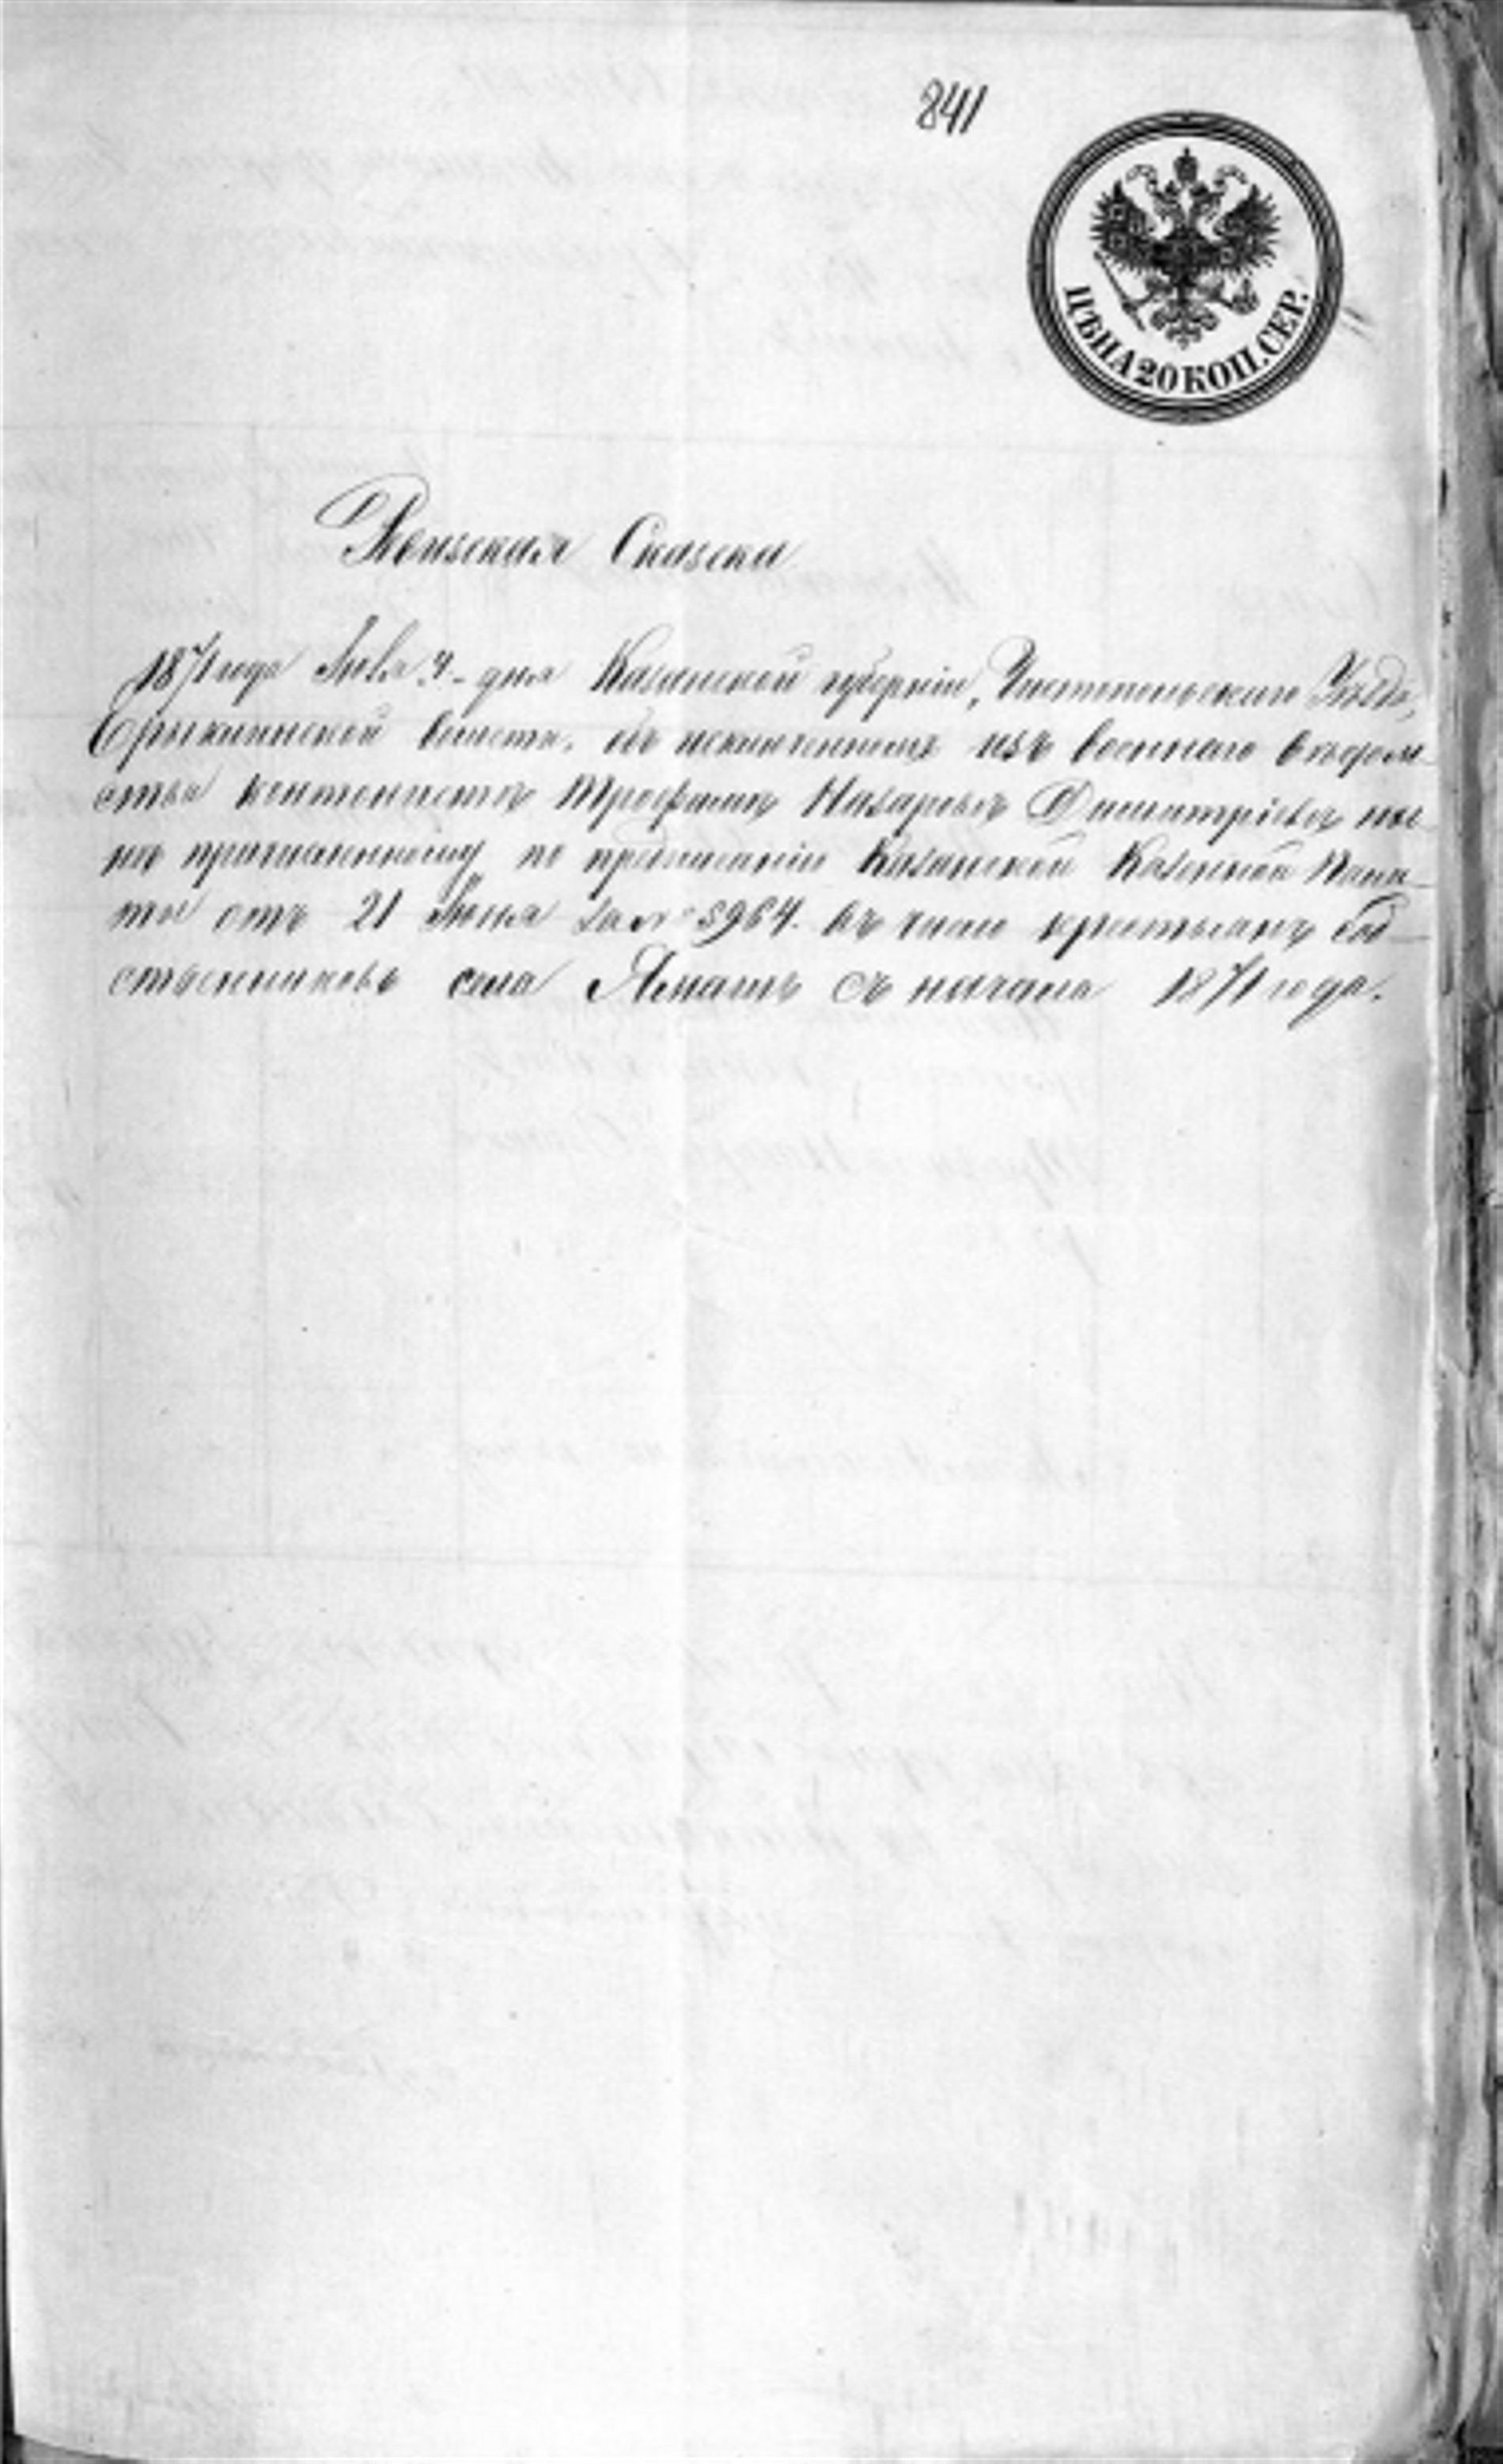 841
ЦѢНА 20 КОП. СЕР.
Ревизская Сказка
1871 года Янв. дня Казанской губерніи, Чистопольскаго Уѣзда,
Ерыклинской волости, объ исключенномъ изъ военнаго ведом-
ства кантонистѣ Трофимѣ Назаровѣ Дмитріевѣ
причисленному по предписанію Казанской Казенной Пала-
ты отъ 21 за № 5964. въ число крестьянъ соб-
ственниковъ села съ начала 1871 года.